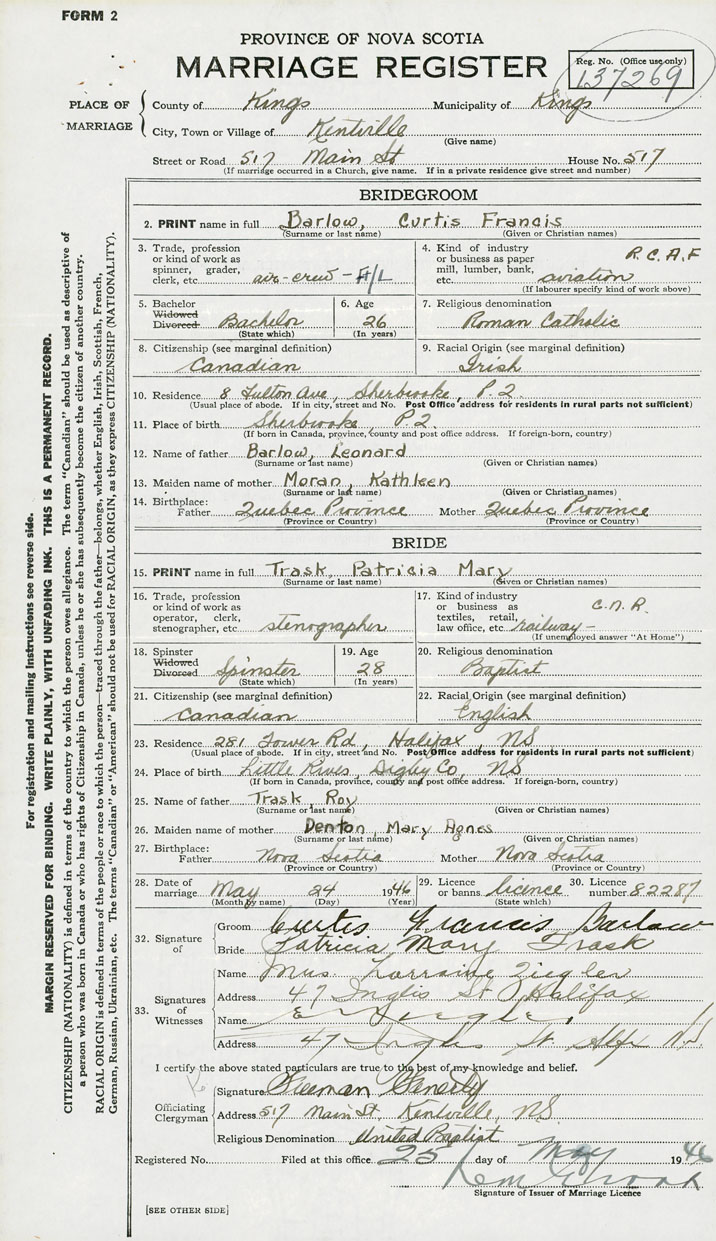 FORM 2
PROVINCE OF NOVA SCOTIA
MARRIAGE REGISTER
Reg. No. (Office use only)
137269
PLACE OF MARRIAGE
County of Kings Municipality of Kings
City, Town or Village of Kentville
(Give name)
Street or Road 517 Main St House No. 517
(If marriage occurred in a Church, give name. If in a private residence give street and number)
BRIDEGROOM
2. PRINT name in full Barlow, Curtis Francis
(Surname or last name) (Given or Christian names)
3. Trade, profession or kind of work as spinner, grader, clerk, etc. air-crew - F/L
4. Kind of industry or business as paper mill, lumber, bank, etc. R.C.A.F aviation
(If labourer specify kind of work above)
5. Bachelor Widowed Divorced Bachelor
(State which)
6. Age 26
(In years)
7. Religious denomination
Roman Catholic
8. Citizenship (see marginal definition)
Canadian
9. Racial Origin (see marginal definition)
Irish
10. Residence 8 Fulton Ave, Sherbrooke, P.2.
(Usual place of abode. If in city, street and No. Post Office address for residents in rural parts not sufficient)
11. Place of birth Sherbrooke, P.2.
(If born in Canada, province, county and post office address. If foreign-born, country)
12. Name of father Barlow, Leonard
(Surname or last name) (Given or Christian names)
13. Maiden name of mother Moran, Kathleen
(Surname or last name) (Given or Christian names)
14. Birthplace:
Father Quebec Province Mother Quebec Province
(Province or Country) (Province or Country)
BRIDE
15. PRINT name in full Trask, Patricia Mary
(Surname or last name) (Given or Christian names)
16. Trade, profession or kind of work as operator, clerk, stenographer, etc stenographer
17. Kind of industry or business as textiles, retail, law office, etc. C.N.R. railway-
(If unemployed answer "At Home")
18. Spinster Widowed Divorced Spinster
(State which)
19. Age 28
(In years)
20. Religious denomination
Baptist
21. Citizenship (see marginal definition)
Canadian
22. Racial Origin (see marginal definition)
English
23. Residence 281 Tower Rd, Halifax, NS
(Usual place of abode. If in city, street and No. Post Office address for residents in rural parts not sufficient)
24. Place of birth Little River, Digby Co, NS
(If born in Canada, province, county and post office address. If foreign-born, country)
25. Name of father Trask, Roy
(Surname or last name) (Given or Christian names)
26. Maiden name of mother Denton, Mary Agnes
(Surname or last name) (Given or Christian names)
27. Birthplace:
Father Nova Scotia Mother Nova Scotia
(Province or Country) (Province or Country)
28. Date of marriage May 24 1946
(Month by name) (Day) (Year)
29. Licence or banns licence
(State which)
30. Licence number 82287
32. Signature of
Groom Curtis Francis Barlow
Bride Patricia Mary Trask
33. Signatures of Witnesses
Name Mrs. Lorraine Ziegler
Address 47 Inglis St Halifax
Name E Ziegler
Address 47 Inglis St. Hlfx N.S.
I certify the above stated particulars are true to the best of my knowledge and belief.
Officiating Clergyman
Signature Freeman Fenerty
Address 517 Main St. Kentville, NS
Religious Denomination United Baptist
Registered No. Filed at this office 25 day of May 1946
Signature of Issuer of Marriage Licence
[SEE OTHER SIDE]
For registration and mailing instructions see reverse side.
MARGIN RESERVED FOR BINDING. WRITE PLAINLY, WITH UNFADING INK. THIS IS A PERMANENT RECORD.
CITIZENSHIP (NATIONALITY) is defined in terms of the country to which the person owes allegiance. The term "Canadian" should be used as descriptive of
a person who was born in Canada or who has rights of Citizenship in Canada, unless he or she has subsequently become the citizen of another country.
RACIAL ORIGIN is defined in terms of the people or race to which the person—traced through the father—belongs, whether English, Irish, Scottish, French,
German, Russian, Ukrainian, etc. The terms "Canadian" or "American" should not be used for RACIAL ORIGIN, as they express CITIZENSHIP (NATIONALITY).